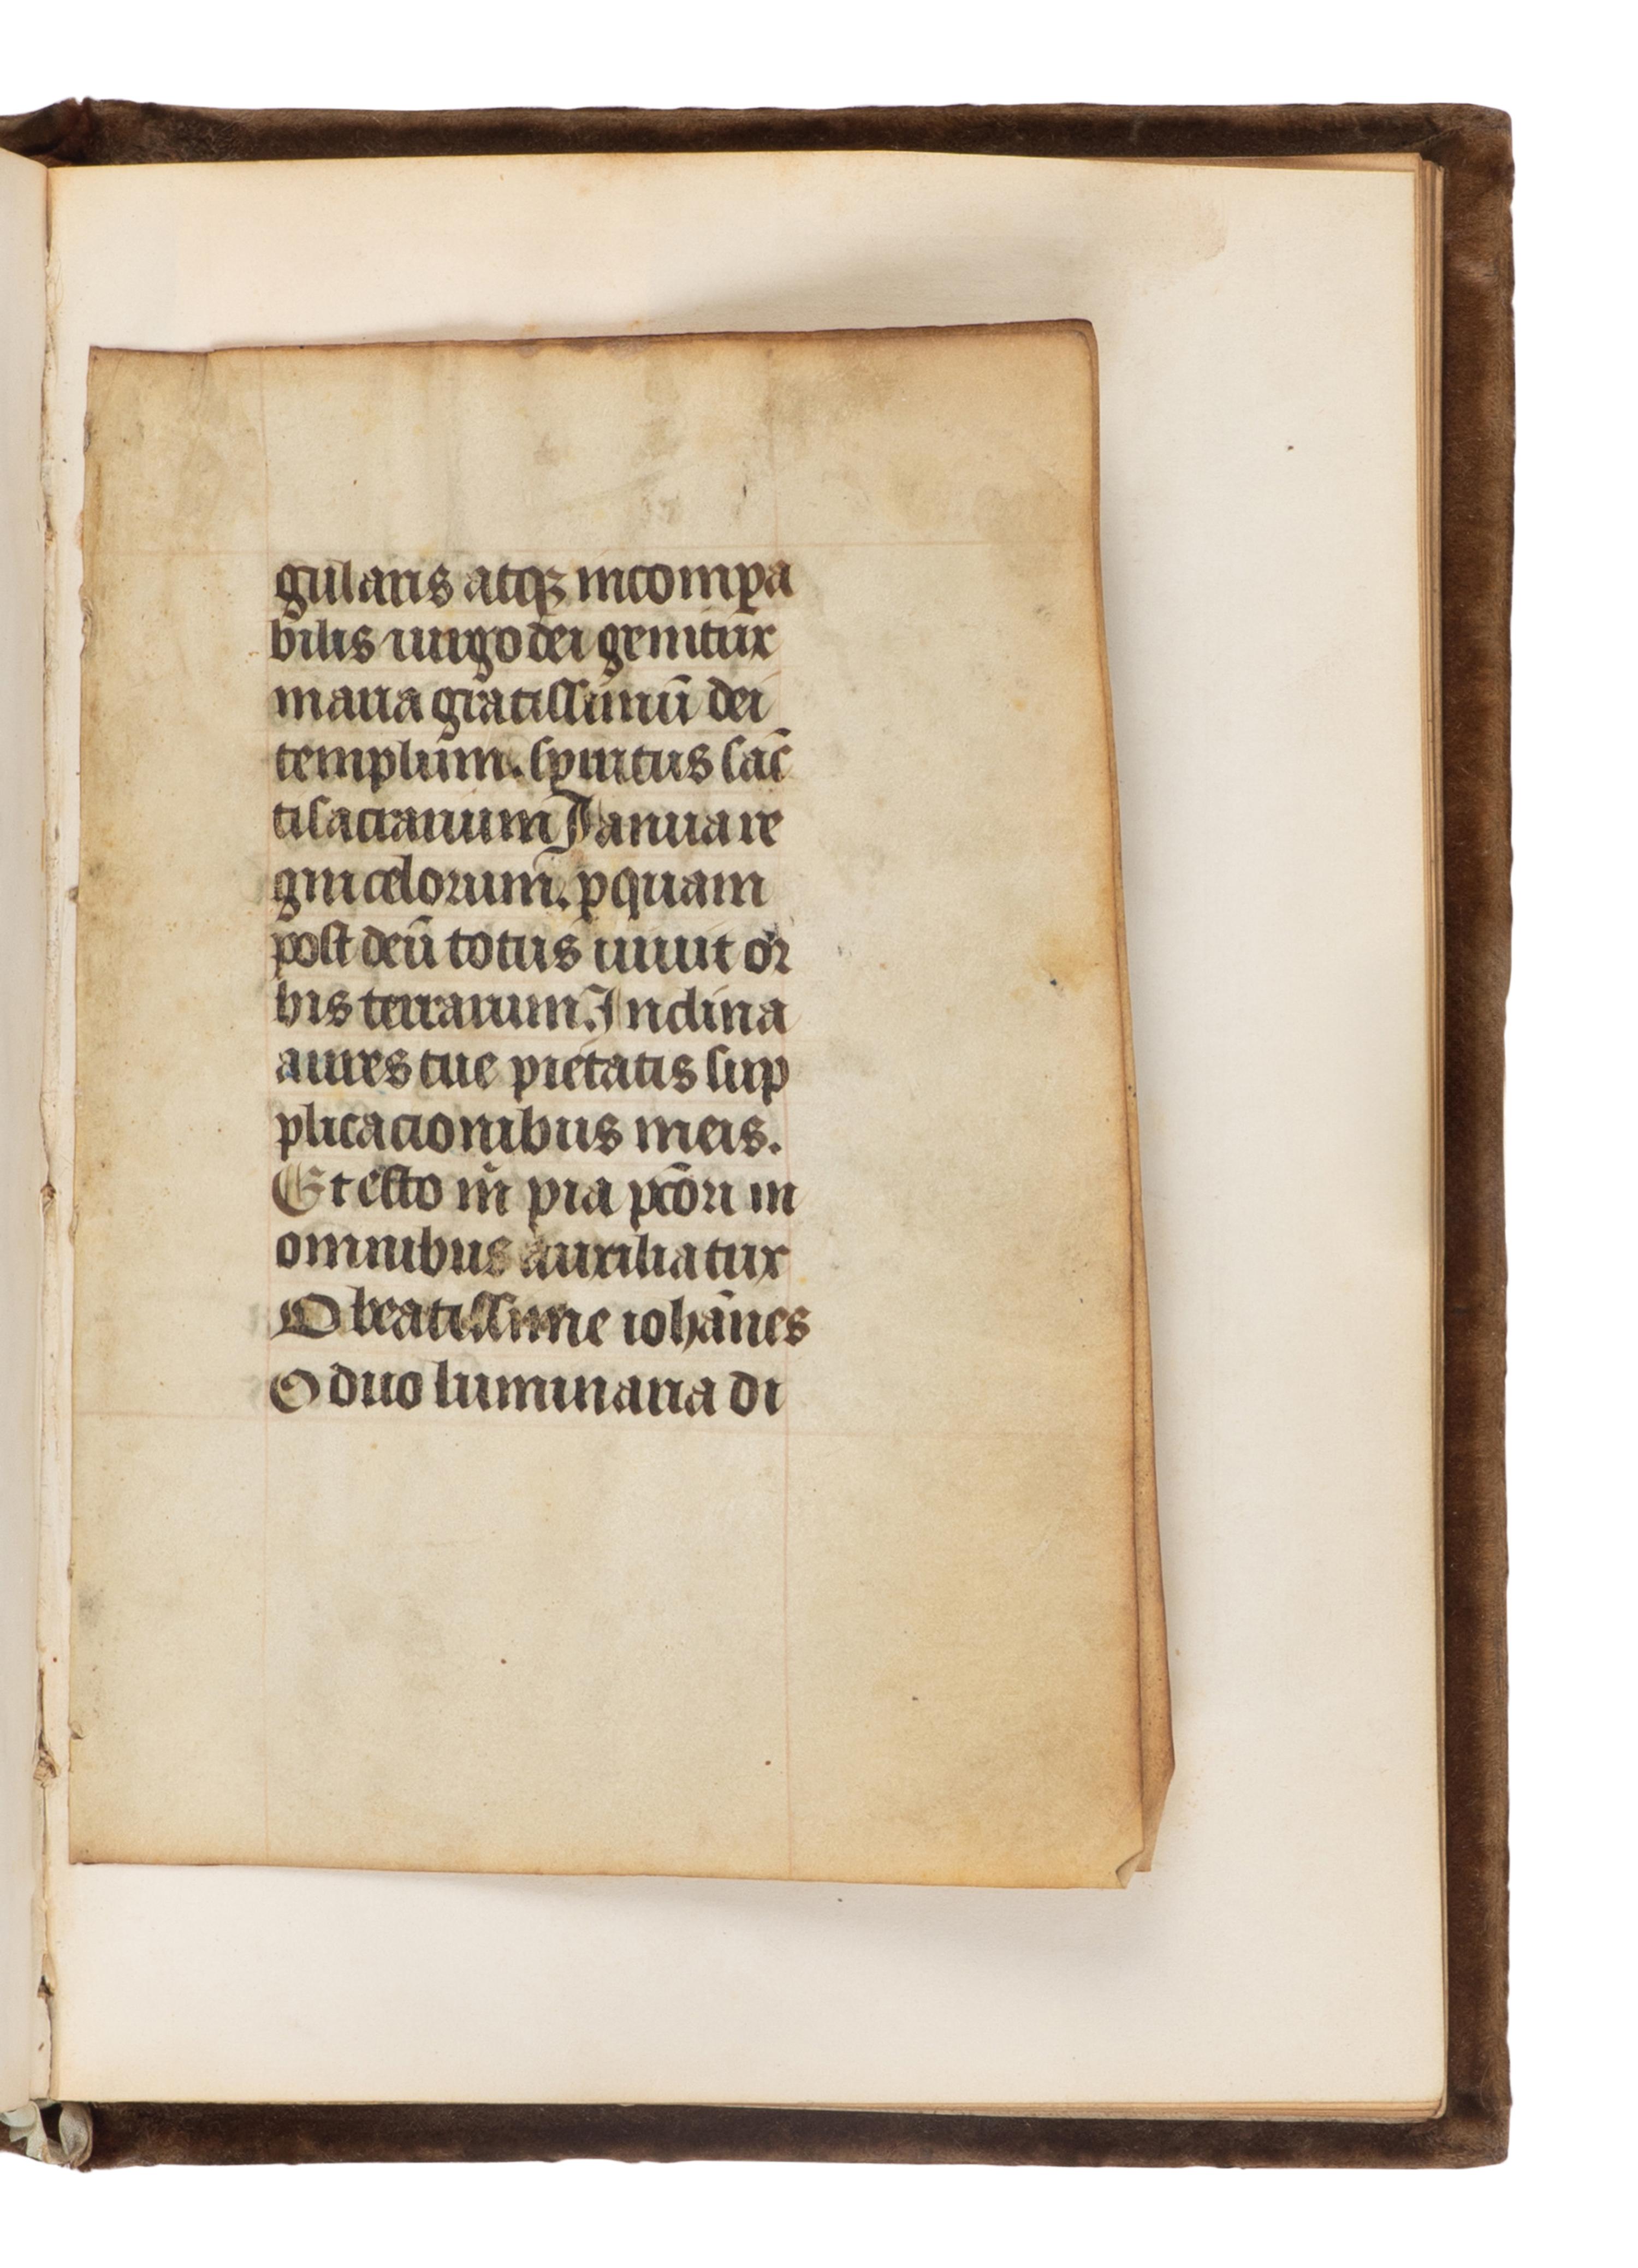 gularis atqꝫ incompa
bilis uirgo dei genitrix
maria gratissimū dei
templum. spiritus sāc
ti sacrarium Ianua re
gni celorum. ꝑ quam
post deū totus uiuit or
bis terrarum. Inclina
aures tue pietatis sup
plicacionibus meis.
Et esto m̄ pia pc̄ori in
omnibus auxiliatrix
O beatissime iohānes
O duo luminaria di